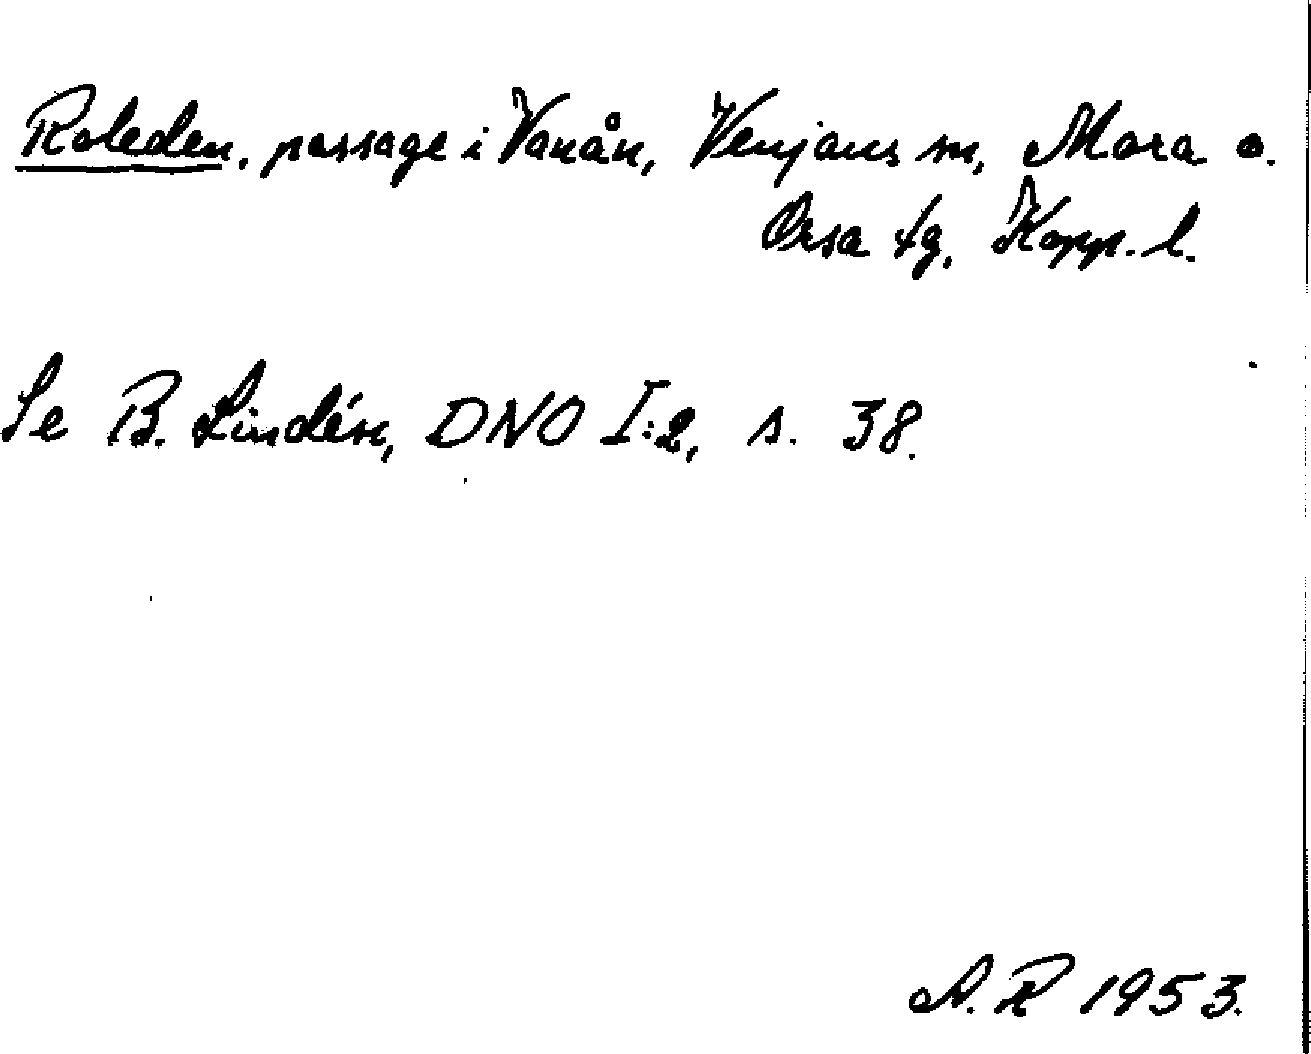 Roleden, passage i Vanån, Venjans sn, Mora o.
Orsa tg, Kopp. l.
Se B. Lindén, DNO I:2, s. 38.
A. R 1953.